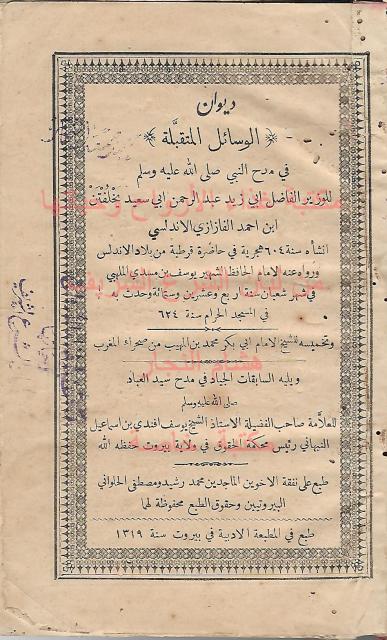 ديوان
الوسائل المتقبلة
في مدح النبي صلى الله عليه وسلم
للوزير الفاضل ابي زيد عبد الرحمن ابي سعيد يَخْلُفْتَنْ
ابن احمد الفازازي الاندلسي
انشأه سنة ٦٠٤ هجرية في حاضرة قرطبة من بلاد الاندلس
ورواه عنه الامام الحافظ الشهير يوسف بن مسدي المهلبي
في شهر شعبان سنة اربع وعشرين وستمائة وحدث به
في المسجد الحرام سنة ٦٢٤
وتخميسه للشيخ الامام ابي بكر محمد بن المهيب من صحراء المغرب
ويليه السابقات الجياد في مدح سيد العباد
صلى الله عليه وسلم
للعلامة صاحب الفضيلة الاستاذ الشيخ يوسف افندي بن اسماعيل
النبهاني رئيس محكمة الحقوق في ولاية بيروت حفظه الله
طبع على نفقة الاخوين الماجدين محمد رشيد ومصطفى الحلواني
البيروتيين وحقوق الطبع محفوظة لهما
طبع في المطبعة الادبية في بيروت سنة ١٣١٩
مكتبة غذاء الأرواح
هشام النجار
مكتبة